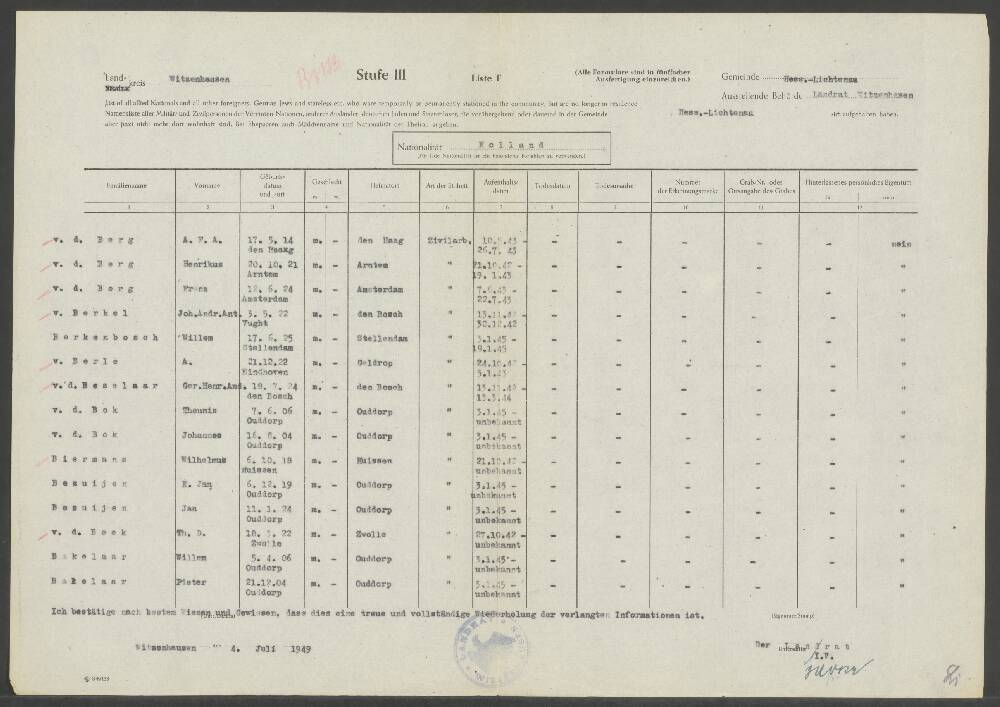 Land- kreis Witzenhausen
Stufe III
Liste I
(Alle Formulare sind in fünffacher
Ausfertigung einzureichen.)
Gemeinde Hess.-Lichtenau
Ausstellende Behörde Landrat Witzenhausen
List of all allied Nationals and all other foreigners, German Jews and stateless etc. who were temporarily or permanently stationed in the community, but are no longer in residence
Namenliste aller Militär- und Zivilpersonen der Vereinten Nationen, anderer Ausländer, deutschen Juden und Staatenloser, die vorübergehend oder dauernd in der Gemeinde Hess.-Lichtenau sich aufgehalten haben,
aber jetzt nicht mehr dort wohnhaft sind. Bei Ehepaaren auch Mädchennamen und Nationalität der Ehefrau angeben.
Nationalität Holland
(Für jede Nationalität ist ein besonderes Formblatt zu verwenden.)
Familienname Vorname Geburts- datum und -ort Geschlecht m. w. Heimatort Art der Einheit Aufenthalts- daten Todesdatum Todesursache Nummer der Erkennungsmarke Grab-Nr. oder Ortsangabe des Grabes Hinterlassenes persönliches Eigentum ja nein
1 2 3 4 5 6 7 8 9 10 11 12
v. d. Berg A. F. A. 17. 5. 14 m. - den Haag Zivilarb. 10.5.43 - - - - - - nein
den Haakg 26.7. 43
v. d. Berg Henrikus 20. 10. 21 m. - Arntem " 21.10.42 - - - - - - "
Arntem 19. 1.43
v. d. Berg Franz 12. 6. 24 m. - Amsterdam " 7.6.43 - - - - - - "
Amsterdam 22.7.43
v. Berkel Joh.Andr.Ant. 3. 5. 22 m. - den Bosch " 13.11.42 - - - - - - "
Vught 30.12.42
Borkenbosch Willem 17. 6. 25 m. - Stellendam " 3.1.45 - - - - - - "
Stellendam 19.1.45
v. Berlo A. 21.12.22 m. - Geldrop " 24.10.42 - - - - - - "
Eindhoven 3.1.43
v. d. Besselaar Ger.Henr.And. 18. 7. 24 m. - den Bosch " 13.11.42 - - - - - - "
den Bosch 13.3.44
v. d. Bok Theunis 7. 6. 06 m. - Ouddorp " 3.1.45 - - - - - - "
Ouddorp unbekannt
v. d. Bok Johannes 16. 8. 04 m. - Ouddorp " 3.1.45 - - - - - - "
Ouddorp unbekannt
Biermans Wilhelmus 6. 10. 18 m. - Huissen " 21.10.42 - - - - - - "
Huissen unbekannt
Bezuijen K. Jan 6. 12. 19 m. - Ouddorp " 3.1.45 - - - - - - "
Ouddorp unbekannt
Bezuijen Jan 11. 1. 24 m. - Ouddorp " 3.1.45 - - - - - - "
Ouddorp unbekannt
v. d. Beek Th. D. 18. 3. 22 m. - Zwolle " 27.10.42 - - - - - - "
Zwolle unbekannt
Bakelaar Willem 5. 4. 06 m. - Ouddorp " 3.1.45 - - - - - - "
Ouddorp unbekannt
Bakelaar Pieter 21.12.04 m. - Ouddorp " 3.1.45 - - - - - - "
Ouddorp unbekannt
Ich bestätige nach bestem Wissen und Gewissen, dass dies eine treue und vollständige Wiederholung der verlangten Informationen ist.
Witzenhausen 4. Juli 1949
Der Landrat
I.V.